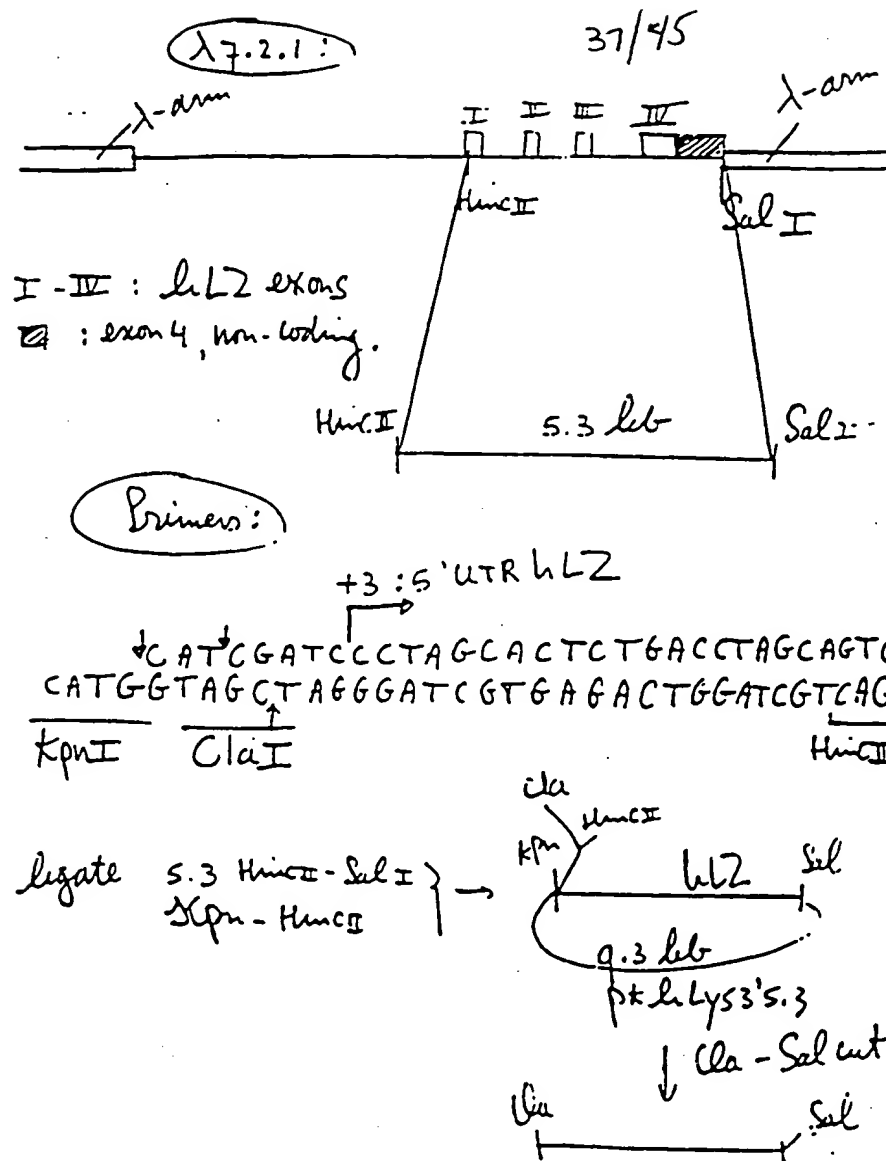 λ7.2.1:
37/45
λ-arm
λ-arm
I II III IV
HincII
Sal I
I - IV : hLZ exons
: exon 4, non-coding.
HincII
5.3 kb
Sal I
Primers:
+3 : 5' UTR hLZ
CATCGATCCCTAGCACTCTGACCTAGCAGTC
CATGGTAGCTAGGGATCGTGAGACTGGATCGTCAG
KpnI
ClaI
HincII
cla
HincII
Kpn
hLZ
Sal
ligate 5.3 HincII - Sal I
Kpn - HincII
9.3 kb
pkhLys3'5.3
Cla - Sal cut
Cla
Sal